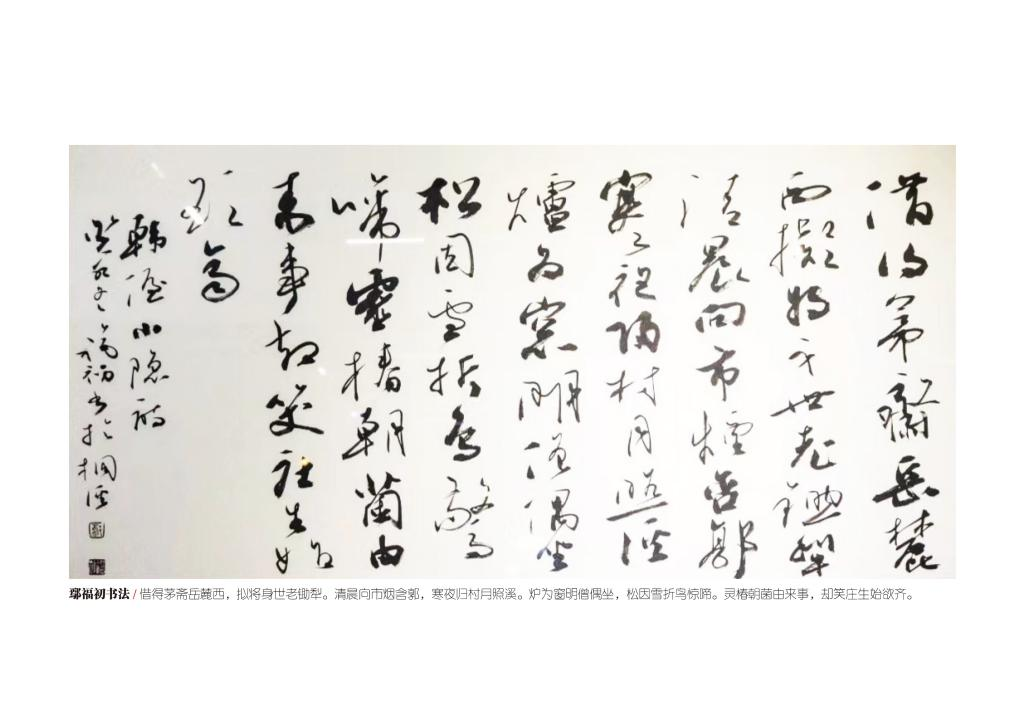 借得茅齋岳麓
西擬將身世老鋤犁
清晨向市煙含郭
寒夜归村月照溪
爐為窓明僧偶坐
松因雪折鳥驚
啼靈椿朝菌由
来事却笑庄生始
欲齊
韩偓小隐诗
福初书於桐溪
鄢福初书法 / 借得茅斋岳麓西，拟将身世老锄犁。清晨向市烟含郭，寒夜归村月照溪。炉为窗明僧偶坐，松因雪折鸟惊啼。灵椿朝菌由来事，却笑庄生始欲齐。